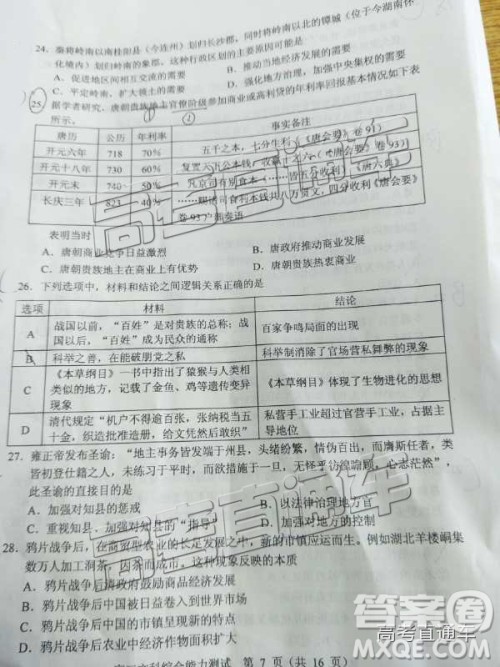 24. 秦将岭南以南桂阳县（今连州）划归长沙郡，同时将岭南以北的镡城（位于今湖南怀
化境内）划归岭南的象郡，这种行政区划的主要原因可能是
A. 促进地区间相互交流的需要 B. 推动当地经济发展的需要
C. 平定岭南、扩大领土的需要 D. 强化地方治理，加强中央集权的需要
25. 据学者研究，唐朝贵族地主官僚阶级参加商业或高利贷的年利率回报基本情况如下表
所示。
唐历 公历 年利率 事实备注
开元六年 718 70% 五千之本，七分生利（《唐会要》卷91）
开元十八年 730 60% 复置天下公本钱，收赢十之六（《唐会要》卷93）
开元末 740 50% 凡京司有别食本……皆五分收利（《唐六典》
长庆三年 823 40% ……赐诸司食利本钱共八万贯文，四分收利《唐会要》
卷93
表明当时
A. 唐朝商业竞争日益激烈 B. 唐政府推动商业发展
C. 唐朝贵族地主在商业上有优势 D. 唐朝贵族热衷商业
26. 下列选项中，材料和结论之间逻辑关系正确的是
选项 材料 结论
A 战国以前，“百姓”是对贵族的总称；战
国以后，“百姓”成为民众的通称 百家争鸣局面的出现
B 科举之善，在能破朋党之私 科举制消除了官场营私舞弊的现象
C 《本草纲目》一书中指出了猿猴与人类相
类似的地方，记载了金鱼、鸡等遗传变异
现象 《本草纲目》体现了生物进化的思想
D 清代规定“机户不得逾百张，张纳税当五
十金，织造批准造册，给文凭然后敢织” 私营手工业超过官营手工业，占据主
导地位
27. 雍正帝发布圣谕：“地主事务皆发端于州县，头绪纷繁，情伪百出，而膺斯任者，类
皆初登仕籍之人，未练习于平时，而欲措施于一旦，无怪乎彷徨瞻顾，心志茫然”，
此圣谕的直接目的是
A. 加强对知县的惩戒 B. 以法律治理地方官
C. 重视知县、加强对知县的“指导” D. 加强对地方的控制
28. 鸦片战争后，在商贸型农业的成长里，新的市镇应运而生。例如湖北羊楼峒集
数万人加工洞茶，因茶而成市，这种现象反映的本质
A. 鸦片战争后清政府鼓励商品经济发展
B. 鸦片战争后中国被日益卷入到世界市场
C. 鸦片战争后中国的市镇呈现新的特点
D. 鸦片战争后农业中经济作物面积扩大
文科综合能力测试 第 7 页（共 16 页）
高考直通车
高考直通车
答案圈
高考直通车